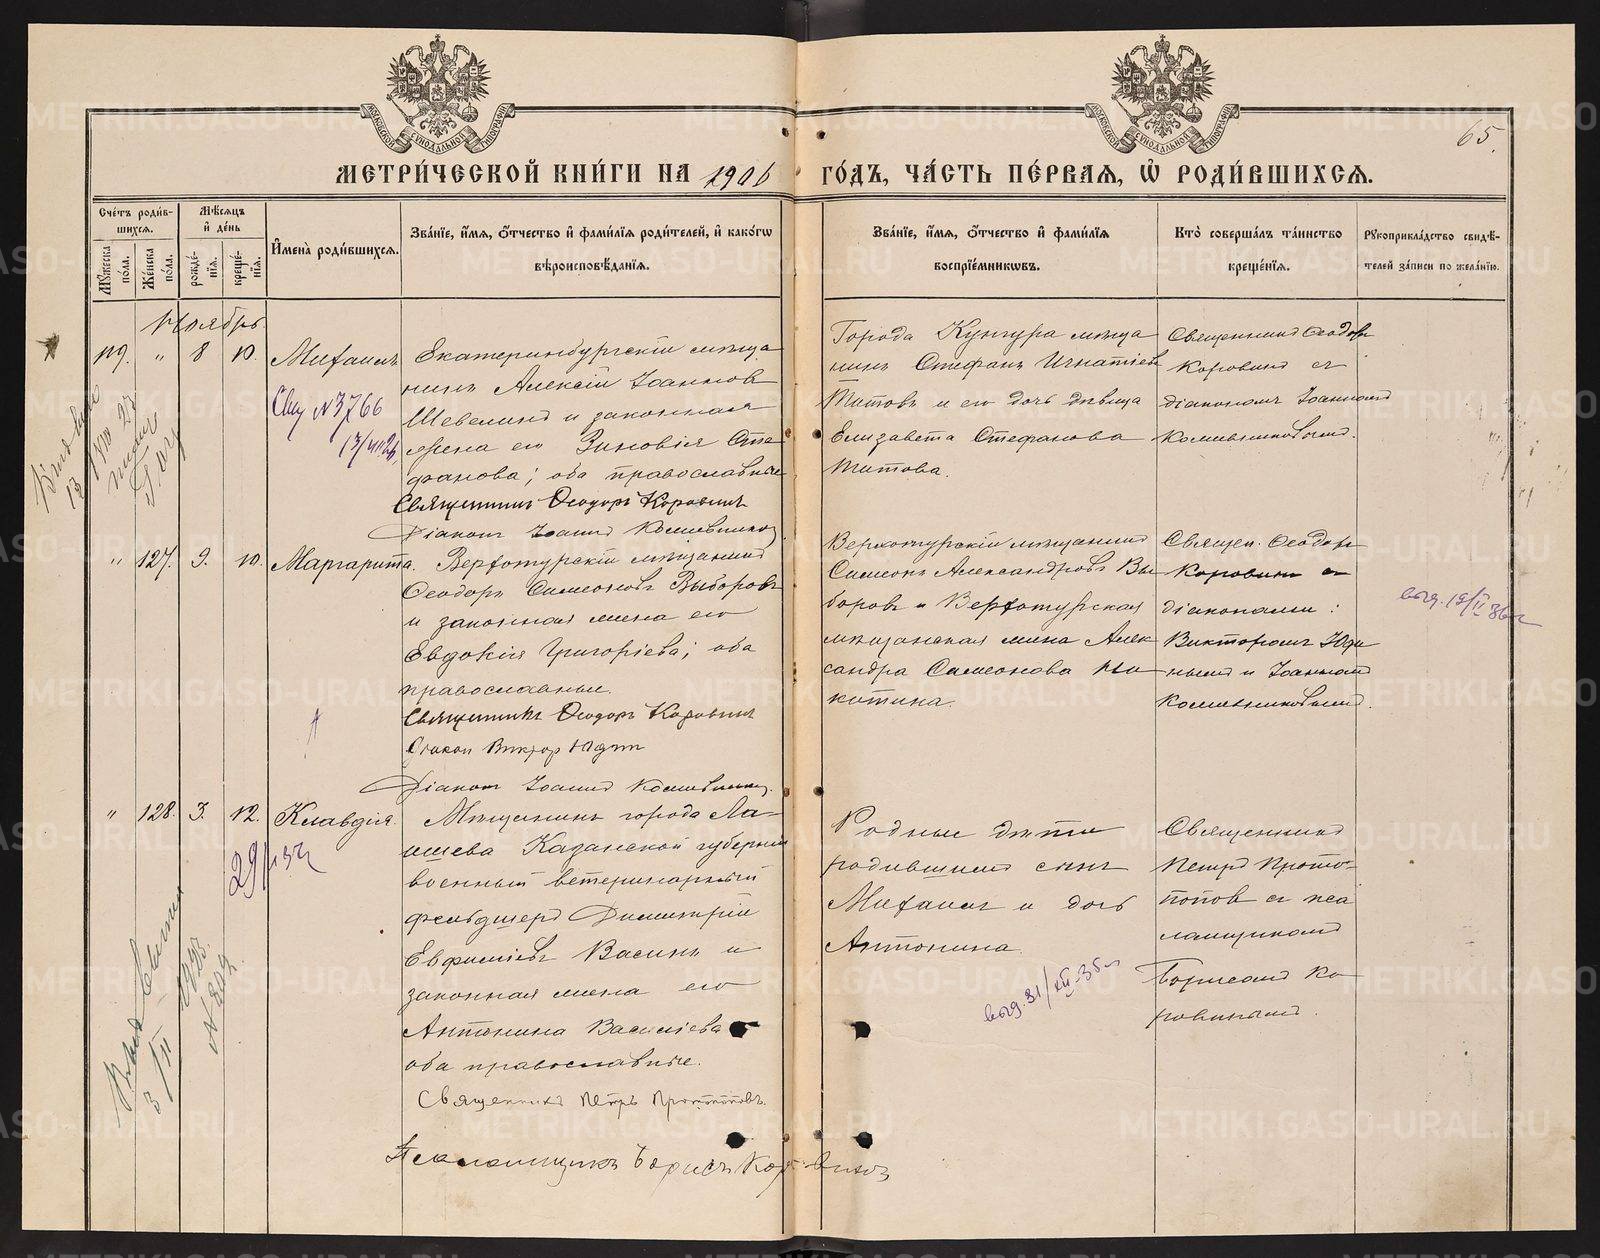 65.
МЕТРИ́ЧЕСКОЙ КНИ́ГИ НА 1906 ГО́ДЪ, ЧА́СТЬ ПЕ́РВАЯ, Ѡ҆ РОДИ́ВШИХСЯ.
Сче́тъ роди́в-
шихся.
Мꙋжеска пола.
Же́нска по́ла.
Мѣ́сяцъ
и҆ де́нь
рожде́-
нїѧ.
креще́-
нїѧ.
И҆мена̀ роди́вшихся.
Зва́нїе, и҆́мѧ, ѻ҆́тчество и҆ фами́лїѧ роди́телей, и҆ како́гѡ
вѣроисповѣ́данїѧ.
Зва́нїе, и҆́мѧ, ѻ҆́тчество и҆ фами́лїѧ
воспрїе́мникѡвъ.
Кто̀ соверша́лъ та́инство
креще́нїѧ.
Рꙋкоприкла́дство свидѣ́-
телей за́писи по жела́нїю.
Ноябрь
119. " 8 10. Михаилъ
Екатеринбургскій мѣща
нинъ Алексій Іоанновъ
Шевелинъ и законная
жена его Зиновія Сте
фанова; оба православные
Священникъ Ѳеодоръ Коровинъ
Діаконъ Іоаннъ Кошевниковъ
Города Кунгура мѣща
нинъ Стефанъ Игнатіевъ
Титовъ и его дочь дѣвица
Елизавета Стефанова
Титова.
Священникъ Ѳеодоръ
Коровинъ съ
діакономъ Іоанномъ
Кошевниковымъ.
Свид №3766
" 127. 9. 10. Маргарита.
Верхотурскій мѣщанинъ
Ѳеодоръ Симеоновъ Выборовъ
и законная жена его
Евдокія Григоріева; оба
православные.
Священникъ Ѳеодоръ Коровинъ
Діакон Виктор Юдин
Діаконъ Іоаннъ Кошевниковъ.
Верхотурскій мѣщанинъ
Симеонъ Александровъ Вы
боровъ и Верхотурская
мѣщанская жена Алек
сандра Симеонова Ни
китина.
Священ. Ѳеодоръ
Коровинъ съ
діаконами:
Викторомъ Юди
нымъ и Іоанномъ
Кошевниковымъ.
выд. 19/II 36г
" 128. 3. 12. Клавдія.
Мѣщанинъ города Ла-
ишева Казанской губерніи
военный ветеринарный
фельдшеръ Димитрій
Евфиміевъ Васинъ и
законная жена его
Антонина Василіева
оба православные.
Священникъ Петръ Протопоповъ.
Псаломщикъ Борисъ Коровинъ
Родные дѣти
родившихъ сынъ
Михаилъ и дочь
Антонина.
Священникъ
Петръ Прото-
поповъ съ пса
ломщикомъ
Борисомъ Ко
ровинымъ.
выд. 31/XII-35г
1923.
№ 209.